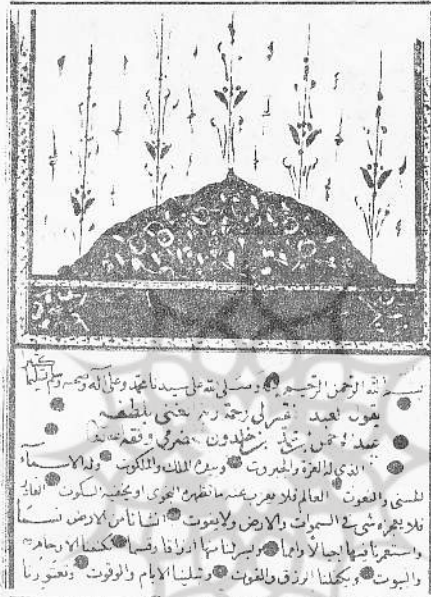 بسم الله الرحمن الرحيم وصلى الله على سيدنا محمد وعلى آله وصحبه وسلم تسليما
يقول العبد الفقير الى رحمة ربه الغنى بلطفه
عبد الرحمن بن خلدون الحضرمى وفقه الله
الذى له العزة والجبروت وبيده الملك والملكوت وله الاسماء
الحسنى والنعوت العالم فلا يعزب عنه ما تظهره النجوى او يخفيه السكوت القادر
فلا يعجزه شى فى السموات والارض ولا يفوت انشانا من الارض نسما
واستعمرنا فيها اجيالا وامما ويسر لنا منها ارزاقا وقسما تكنفنا الارحام
والبيوت ويكفلنا الرزق والقوت وتبلينا الايام والوقوت وتعتورنا